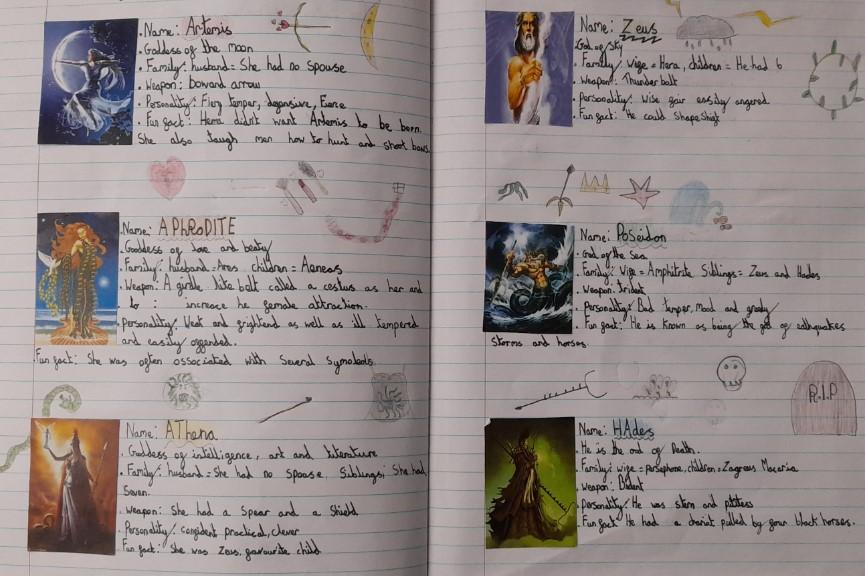 Name: Artemis
. Goddess of the moon
. Family: husband = She had no spouse
. Weapon: Bowand arrow
. Personality: Fiery temper, defensive, Fierce
. Fun fact: Hera didnt want Artemis to be born.
She also taugh men how to hunt and shoot bows.
Name: APhRoDITE
. Goddess of love and beaty
. Family: husband = Ares children = Aeneas
. Weapon: A girdle like belt called a cestus as her and
to : increase he female attraction.
. Personality: Weak and frightend as well as ill tempered
and easily offended.
Fun fact: She was often associated with several symolods.
Name: AThena
. Goddess of intelligence, art and literature
. Family: husband = She had no spouse, Siblings; She had
Seven.
. Weapon: She had a Spear and a Shield
. Personality: confident practical, clever
Fun fact: She was Zeus, favourite child
Name: Zeus
. God of Sky
. Family: wife = Hera, children = He had 6
. Weapon: Thunderbolt
. Personality: Wise fair easily angered
. Fun fact: He could Shapeshift
Name: PoSeidon
. God of the Sea
. Family: Wife = Amphitrite Siblings = Zeus and Hades
. Weapon: trident
. Personality: Bad temper, Mood and greedy
. Fun fact: He is Known as being the god of eathquakes
Storms and horses.
R.I.P
Name: HAdes
. He is the god of Death.
. Family: wife = persephone, children = Zagreus Macaria
. Weapon: Bident
. Personality: He was stern and pitiless
. Fun fact He had a chariot pulled by four black horses.